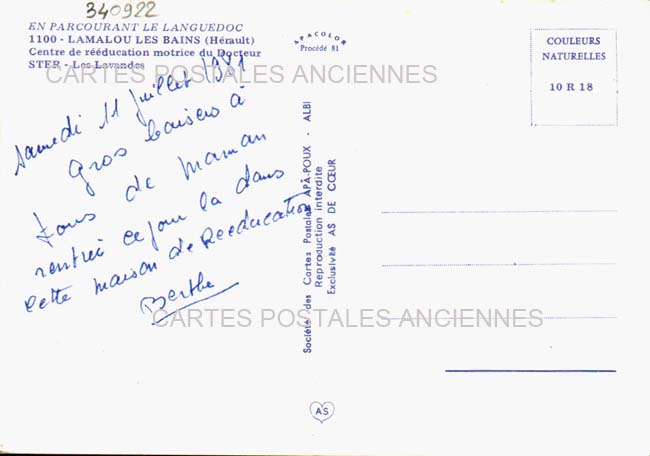 340922
EN PARCOURANT LE LANGUEDOC
1100 - LAMALOU LES BAINS (Hérault)
Centre de rééducation motrice du Docteur
STER - Les Lavandes
APACOLOR
Procédé 81
COULEURS
NATURELLES
10 R 18
CARTES POSTALES ANCIENNES
Samedi 11 juillet 1981
Gros baisers à
tous de Maman
rentrée ce jour la dans
cette maison de Rééducation
Berthe
CARTES POSTALES ANCIENNES
Société des Cartes Postales APA-POUX - ALBI
Reproduction interdite
Exclusivité AS DE CŒUR
AS